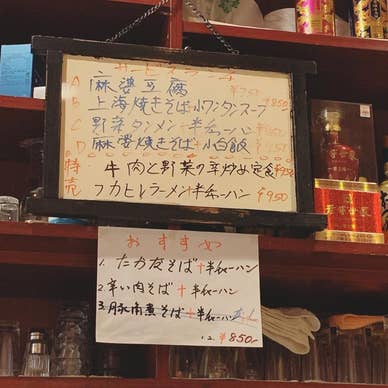 A 麻婆豆腐
B 上海焼きそば小ワンタンスープ ¥850
C 野菜タンメン+半チャーハン
D 麻婆焼きそば+小白飯
特売 牛肉と野菜の辛炒め定食 ¥950
フカヒレラーメン+半チャーハン ¥950
おすすめ
1. たか菜そば+半チャーハン
2. 辛い肉そば+半チャーハン
3. 豚角煮そば+半チャーハン
1.2. ¥850-